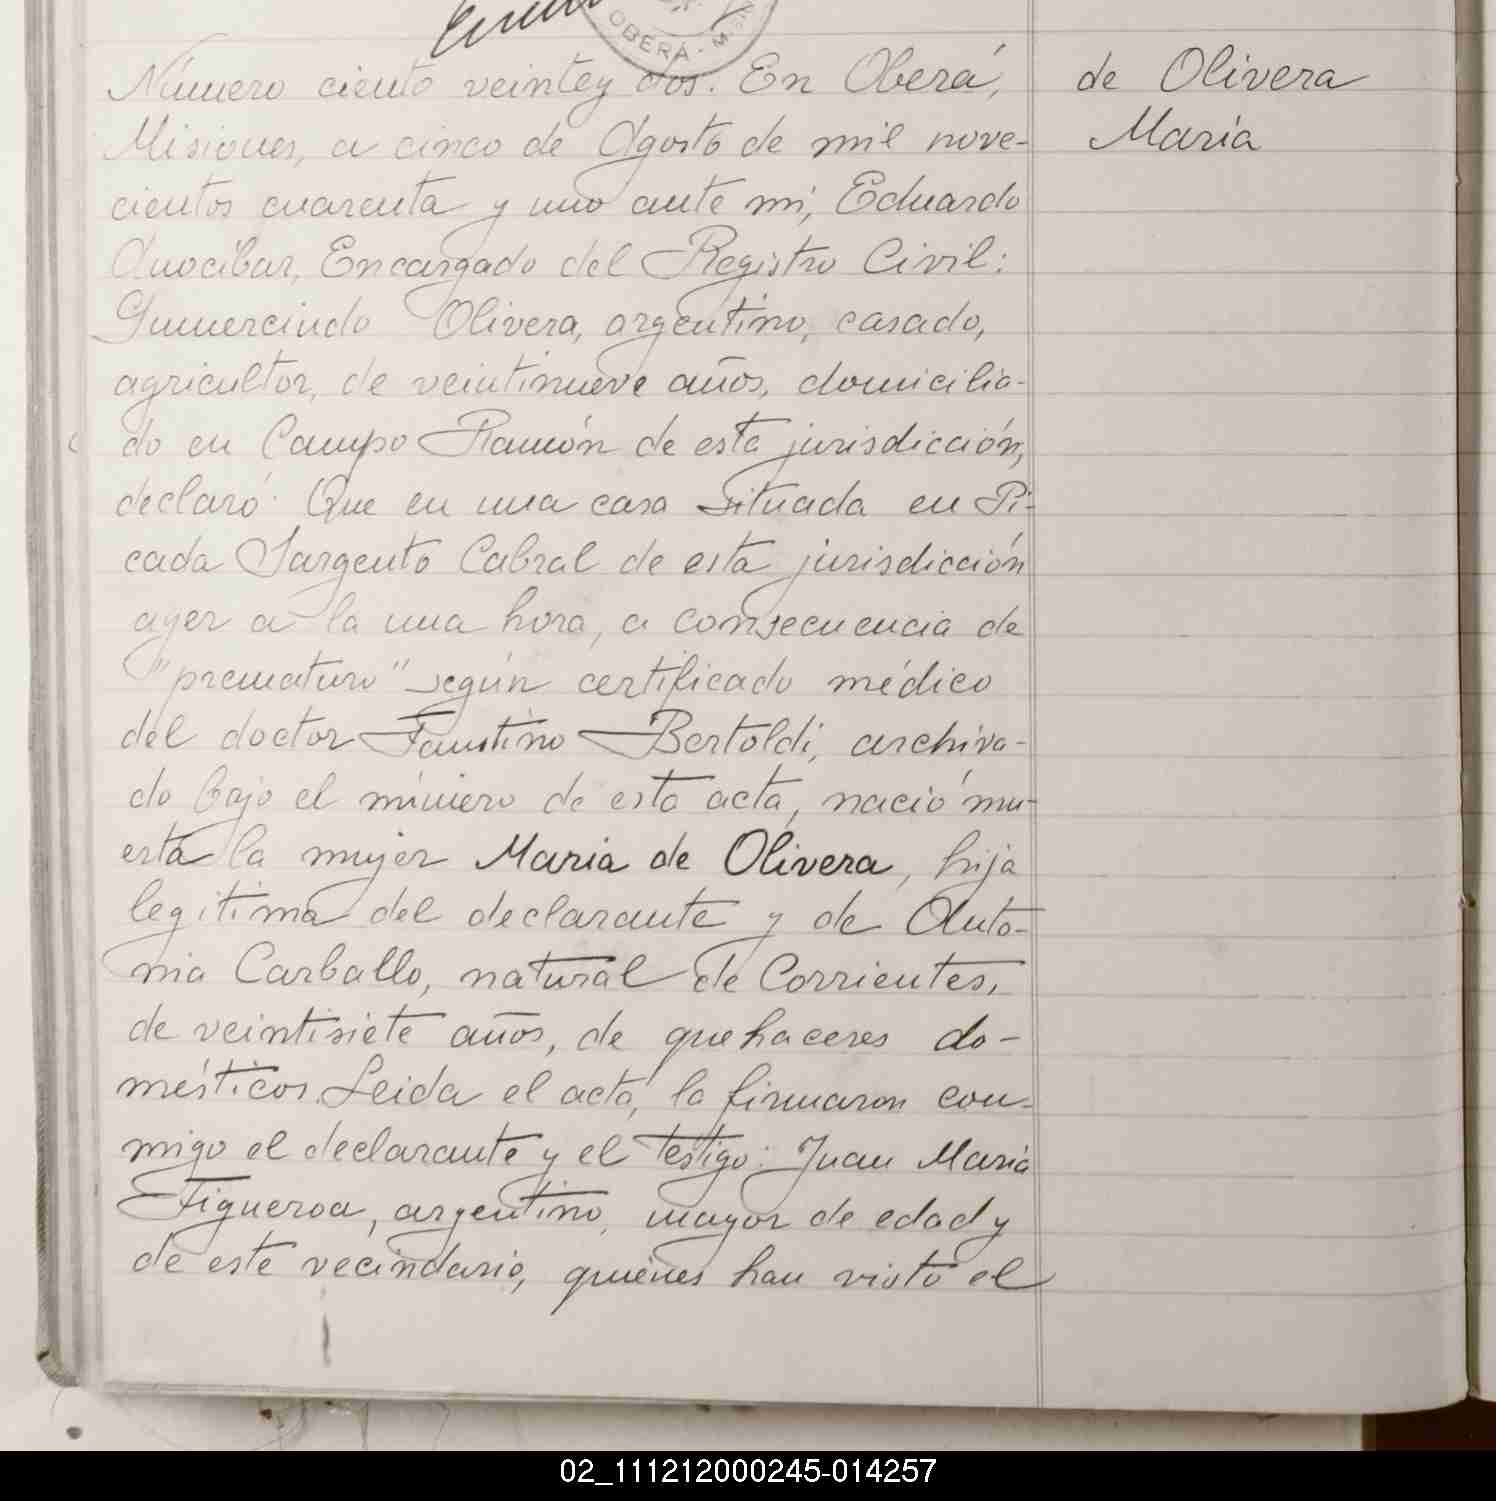 OBERÁ - M
Número ciento veintey dos. En Oberá,
Misiones, a cinco de Agosto de mil nove-
cientos cuarenta y uno ante mí, Eduardo
Anocíbar, Encargado del Registro Civil:
Gumercindo Olivera, argentino, casado,
agricultor, de veintinueve años, domicilia-
do en Campo Ramón de esta jurisdicción,
declaró: Que en una casa situada en Pi-
cada Sargento Cabral de esta jurisdicción
ayer a la una hora, a consecuencia de
"prematuro" según certificado médico
del doctor Faustino Bertoldi, archiva-
do bajo el número de esta acta, nació mu-
erta la mujer Maria de Olivera, hija
legítima del declarante y de Anto-
nia Carballo, natural de Corrientes,
de veintisiete años, de quehaceres do-
mésticos. Leida el acta, la firmaron con-
migo el declarante y el testigo: Juan María
Figueroa, argentino, mayor de edad y
de este vecindario, quienes han visto el
de Olivera
María
02_111212000245-014257